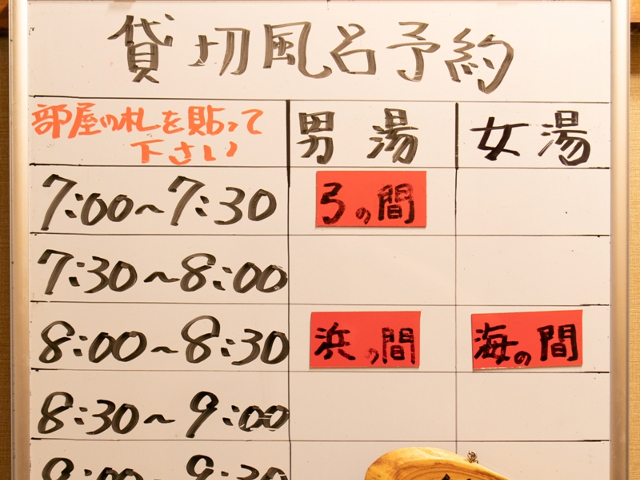 貸切風呂予約
部屋の札を貼って
下さい
男湯 女湯
7:00〜7:30 弓の間
7:30〜8:00
8:00〜8:30 浜の間 海の間
8:30〜9:00
9:00〜9:30